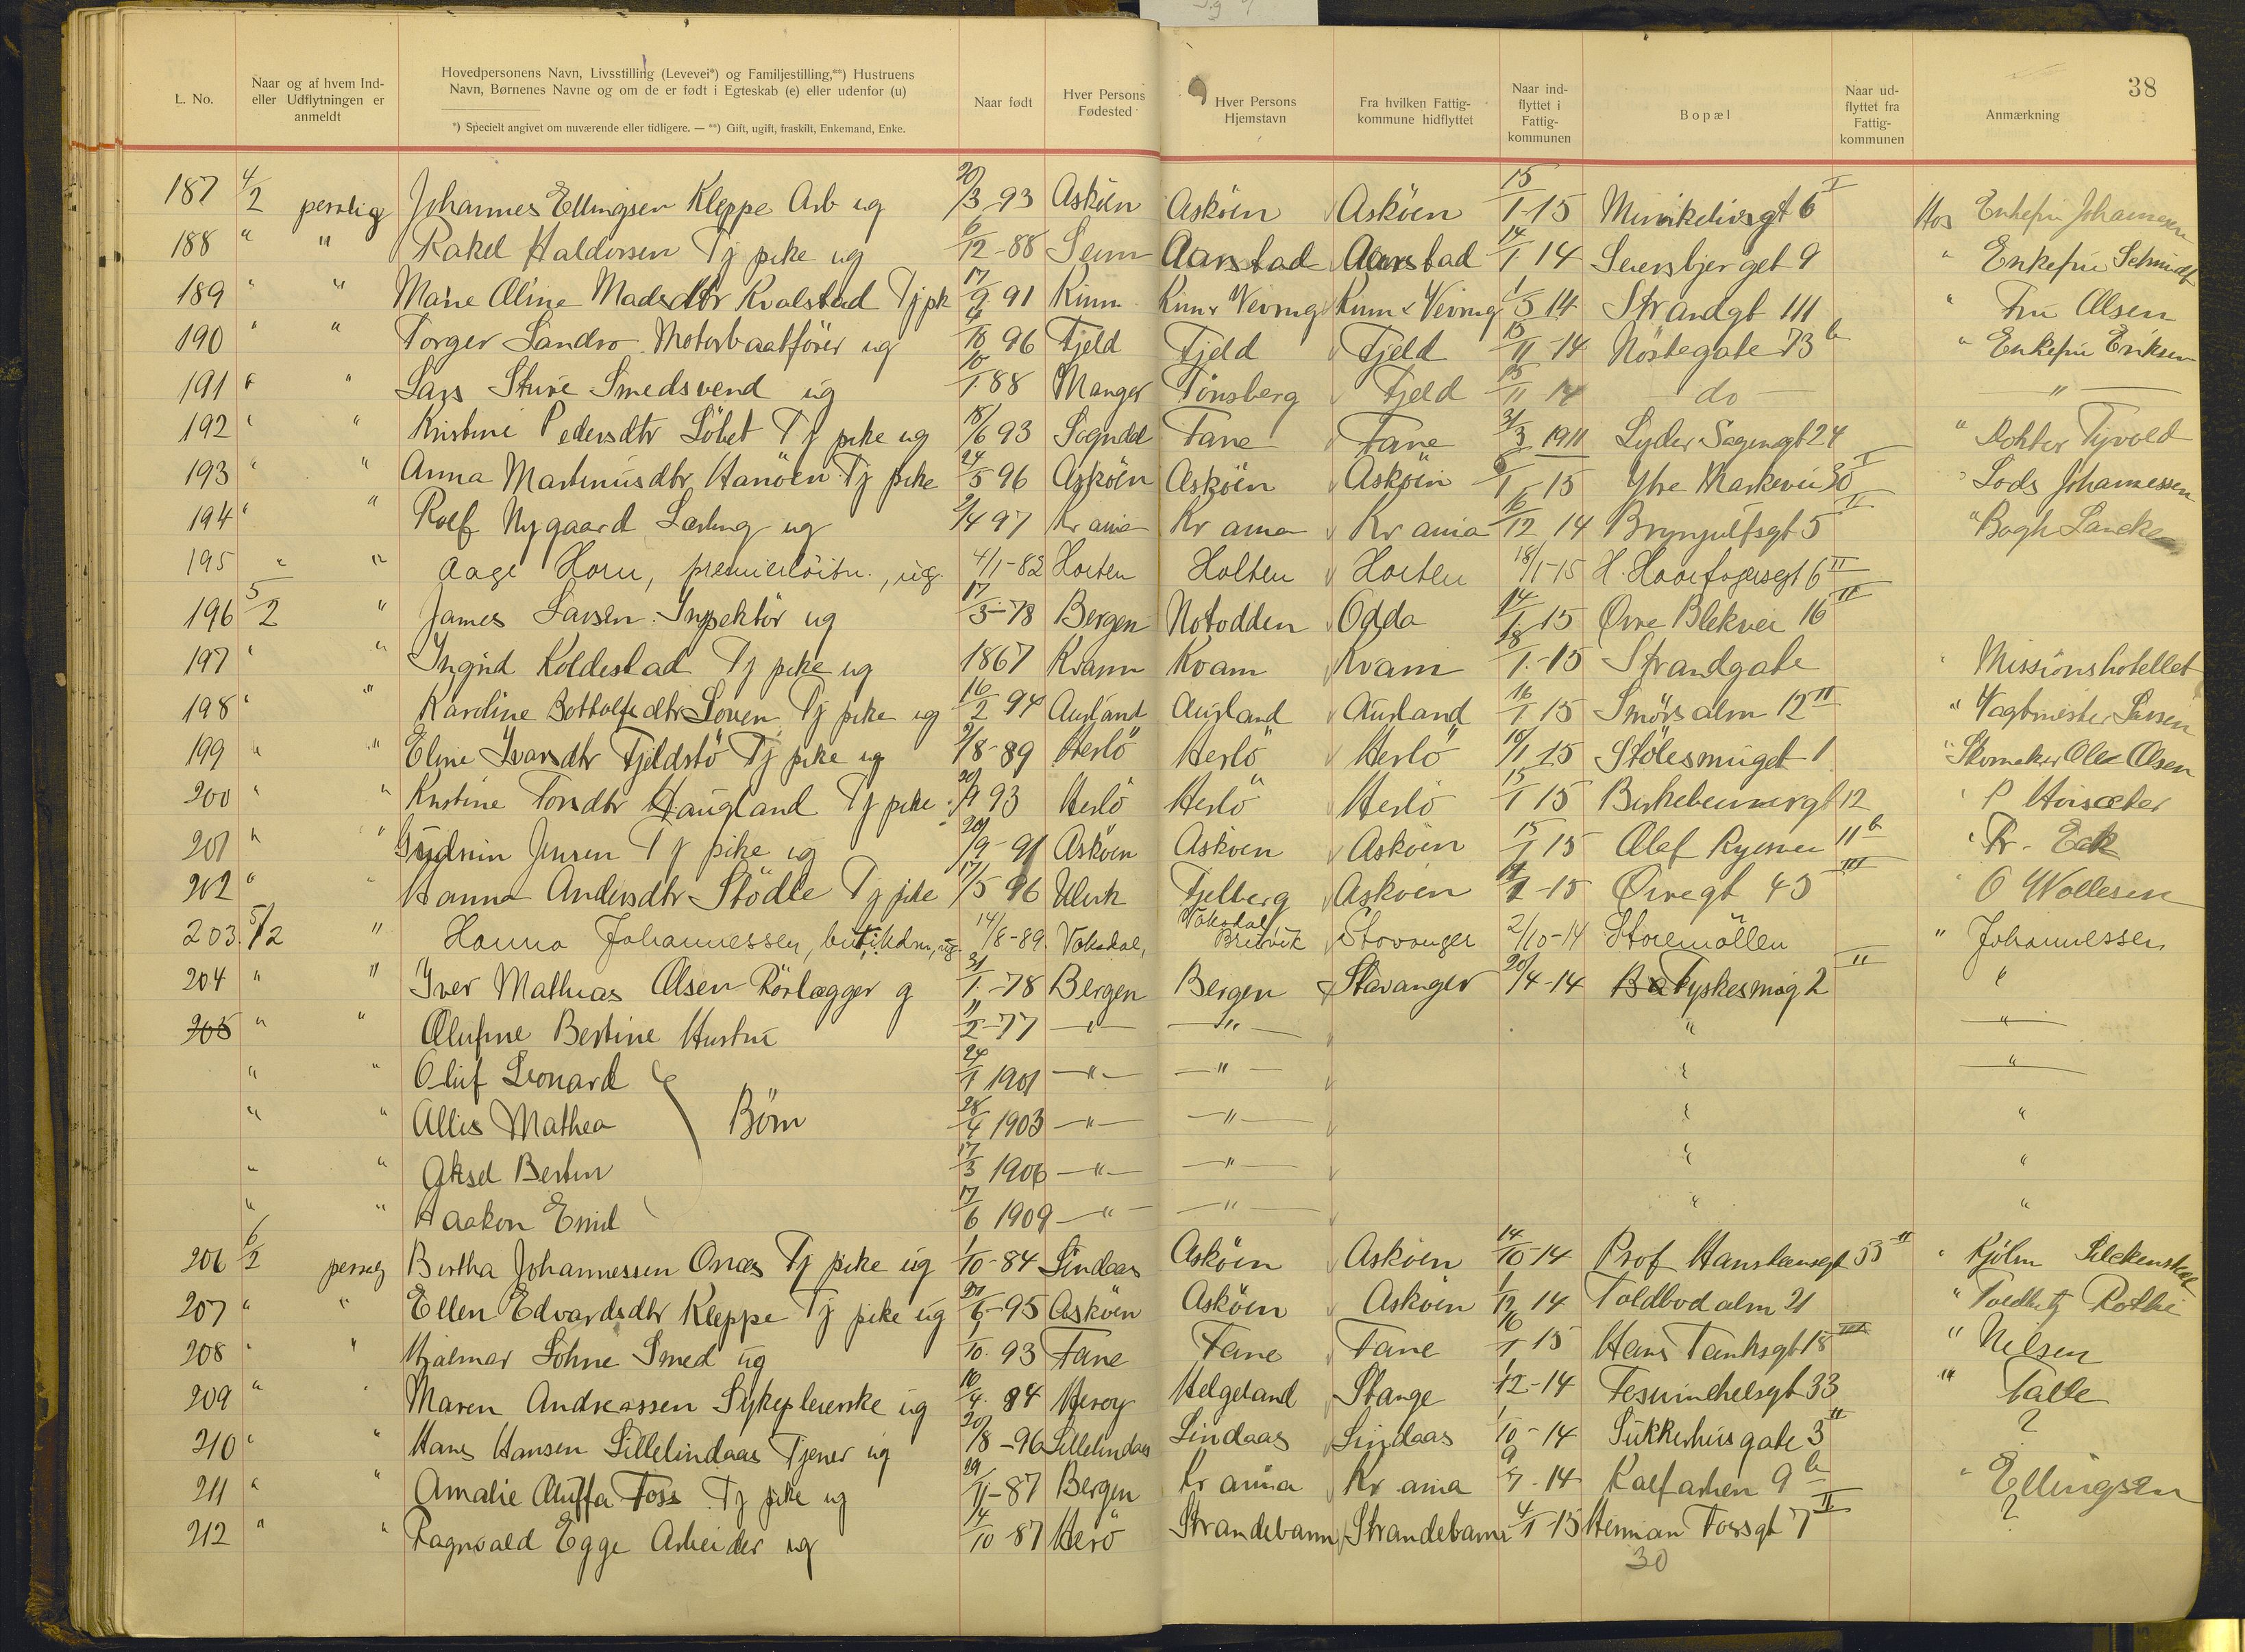 38
L. No.
Naar og af hvem Ind- eller Udflytningen er anmeldt
Hovedpersonens Navn, Livsstilling (Levevei*) og Familjestilling,**) Hustruens Navn, Børnenes Navne og om de er født i Egteskab (e) eller udenfor (u)
*) Specielt angivet om nuværende eller tidligere. — **) Gift, ugift, fraskilt, Enkemand, Enke.
Naar født
Hver Persons Fødested
Hver Persons Hjemstavn
Fra hvilken Fattig- kommune hidflyttet
Naar ind- flyttet i Fattig- kommunen
Bopæl
Naar ud- flyttet fra Fattig- kommunen
Anmærkning
187 4/2 persnlig Johannes Ellingsen Kleppe Arb ug 20/3 93 Asköen Asköen Asköen 15/1-15 Munkelivsgt 6 I Hos Enkefru Johannesen
188 " " Rakel Haldorsen Tj pike ug 6/12-88 Seim Aarstad Aarstad 14/1 14 Seiersbjerget 9 " Enkefru Schmidt
189 " " Marie Oline Madsdtr Kvalstad Tj pk 17/9 91 Kinn Kinn & Vevring Kinn & Vevring 1/5 14 Strandgt 111 " Fru Olsen
190 " " Torger Landro Motorbaatförer ug 4/10 96 Fjeld Fjeld Fjeld 15/11-14 Nöstegate 73 b " Enkefru Eriksen
191 " " Lars Sture Smedsvend ug 10/1 88 Manger Tönsberg Fjeld 15/11 14 do "
192 " " Kristine Pedersdtr Löbet Tj pike ug 18/6 93 Sogndal Fane Fane 31/3 1911 Lyder Sagensgt 24 " Dokter Tyvold
193 " " Anna Martinusdtr Hanöen Tj pike 24/5 96 Asköen Asköen Asköen 1-15 Ytre Markevei 30 I " Lods Johannessen
194 " " Rolf Nygaard Lærling ug 2/4 97 Kr ania Kr ania Kr ania 16/12 14 Brynjulfsgt 5 II "
195 " " Aage Horn, premierlöitn., ug. 4/1-82 Horten Holten Horten 18/1-15 H. Haarfagersgt 6 II
196 5/2 " James Larsen Inspektör ug 17/3-78 Bergen Notodden Odda 14/1 15 Övre Blekvei 16 II
197 " " Ingrid Koldestad Tj pike ug 1867 Kvam Kvam Kvam 18/1-15 Strandgate " Missionshotellet
198 " " Karoline Bottolfsdtr Loven Tj pike ug 16/2 94 Aurland Aurland Aurland 16/1 15 Smörsalm 12 II " Vagtmester Larsen
199 " " Eline Ivarsdtr Fjeldstö Tj pike ug 2/8-89 Herlö Herlö Herlö 16/1 15 Stölesmuget 1 " Skomaker Ole Olsen
200 " " Kristine Torsdtr Haugland Tj pike 20/9 93 Herlö Herlö Herlö 15/1 15 Birkebeinergt 12 "
201 " " Gudrun Jensen Tj pike ug 20/9-91 Asköen Asköen Asköen 15/1 15 Olaf Ryesvei 11 b " Fr. Eck
202 " " Hanna Andersdtr Stödle Tj pike 17/5 96 Ulvik Fjelberg Asköen 1-15 Övregt 45 III " O Wollesen
203. 5/2 " Hanna Johannessen, butikdm, ug. 14/8-89. Vaksdal, Vaksdal, Bruvik Stavanger 2/10-14 Storemöllen " Johannessen
204 " " Iver Mathias Olsen Rörlægger g 31/1-78 Bergen Bergen Stavanger 20/4-14 Tyskesmug 2 II "
205 " " Olufine Bertine Hustru 11/2-77 " " " "
" " Oluf Leonard 24/1 1901 " " " "
" " Allis Mathea Börn 28/4 1903 " " " "
" " Aksel Bertin 17/3 1906 " " " "
" " Haakon Emil 17/6 1909 " " " "
206 6/2 persnlg Bertha Johannessen Onæs Tj pike ug 1/10-84 Lindaas Asköen Asköen 14/10-14 Prof Hansteensgt 55 II "
207 " " Ellen Edvardsdtr Kleppe Tj pike ug 21/6-95 Asköen Asköen Asköen 1/12 14 Toldbodalm 21 "
208 " " Hjalmar Lohne Smed ug 1/10. 93 Fane Fane Fane 16/1 15 Hans Tanksgt 18 III " Nilsen
209 " " Maren Andreassen Sykepleierske ug 10/4. 84 Heröy Helgeland Stange 1/12-14 Fosswinckelsgt 33 " Falle
210 " " Hans Hansen Lillelindaas Tjener ug 20/8-96 Lillelindaas Lindaas Lindaas 1/10-14 Sukkerhusgate 3 II ?
211 " " Amalie Oluffa Foss Tj pike ug 29/11-87 Bergen Kr ania Kr ania 9/7-14 Kalfarlien 9 b " Ellingsen
212 " " Ragnvald Egge Arbeider ug 14/10-87 Herö Strandebarm Strandebarm 4/1-15 Herman Fossgt 7 II ?
30